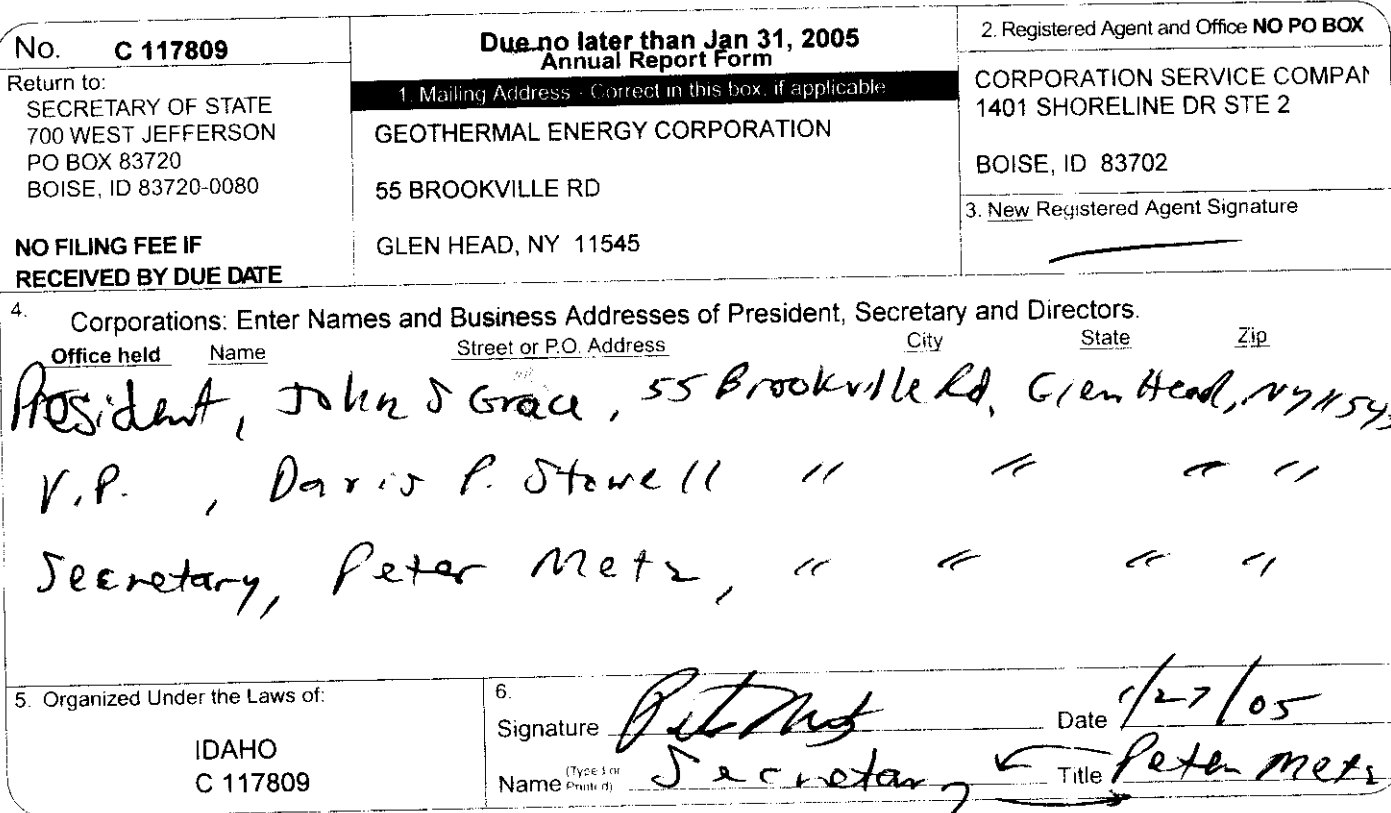 No. C 117809
Return to:
SECRETARY OF STATE
700 WEST JEFFERSON
PO BOX 83720
BOISE, ID 83720-0080
NO FILING FEE IF
RECEIVED BY DUE DATE
Due no later than Jan 31, 2005
Annual Report Form
1. Mailing Address - Correct in this box, if applicable
GEOTHERMAL ENERGY CORPORATION
55 BROOKVILLE RD
GLEN HEAD, NY 11545
2. Registered Agent and Office NO PO BOX
CORPORATION SERVICE COMPAN
1401 SHORELINE DR STE 2
BOISE, ID 83702
3. New Registered Agent Signature
4. Corporations: Enter Names and Business Addresses of President, Secretary and Directors.
Office held Name Street or P.O. Address City State Zip
President, John S Grace, 55 Brookville Rd, Glen Head, NY 11545
V.P. , Davis P. Stowell " " " "
Secretary, Peter Metz, " " " "
5. Organized Under the Laws of:
IDAHO
C 117809
6.
Signature Peter Metz Date 1/27/05
Name (Typed or Printed) Secretary Title Peter Metz